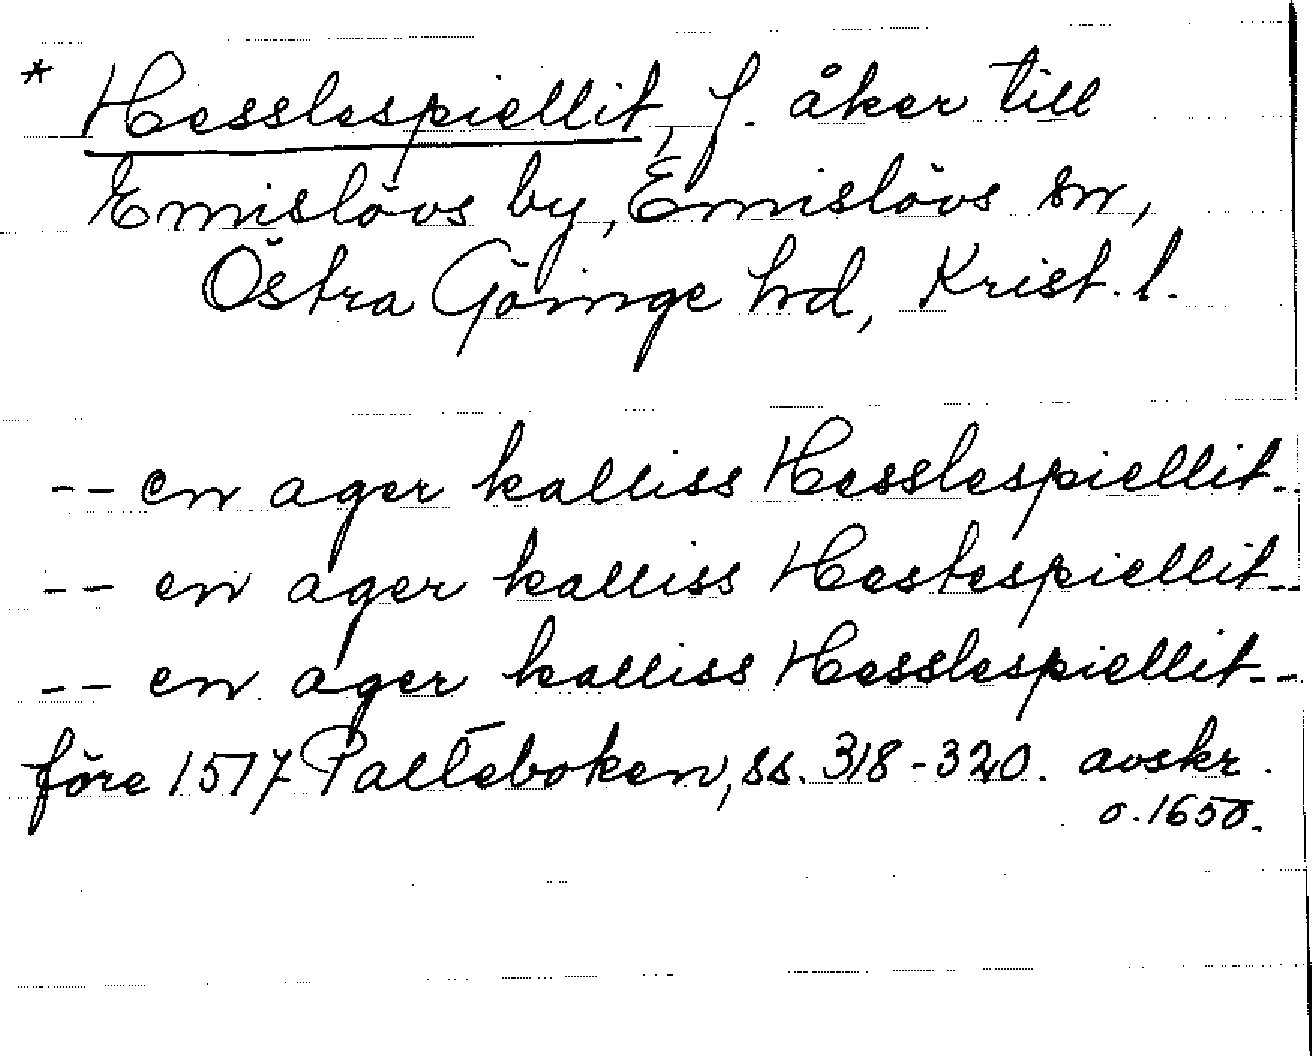 * Hesslespiellit, f. åker till
Emislövs by, Emislövs sn,
Östra Göinge hd, Krist. l.
-- en ager kalliss Hesslespiellit--
-- en ager kalliss Hestespiellit--
-- en ager kalliss Hesslespiellit--
före 1517 Palteboken, ss. 318-320. avskr.
o. 1650.